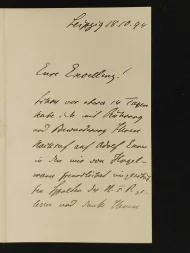 Leipzig 18.10.94
Eure Excellenz!
Schon vor etwa 14 Tagen
habe ich mit Rührung
und Bewunderung Ihren
Nachruf auf Adolf
in den mir von
freundlichst
ten Spalten der N. F. P. ge-
lesen und danke Ihnen